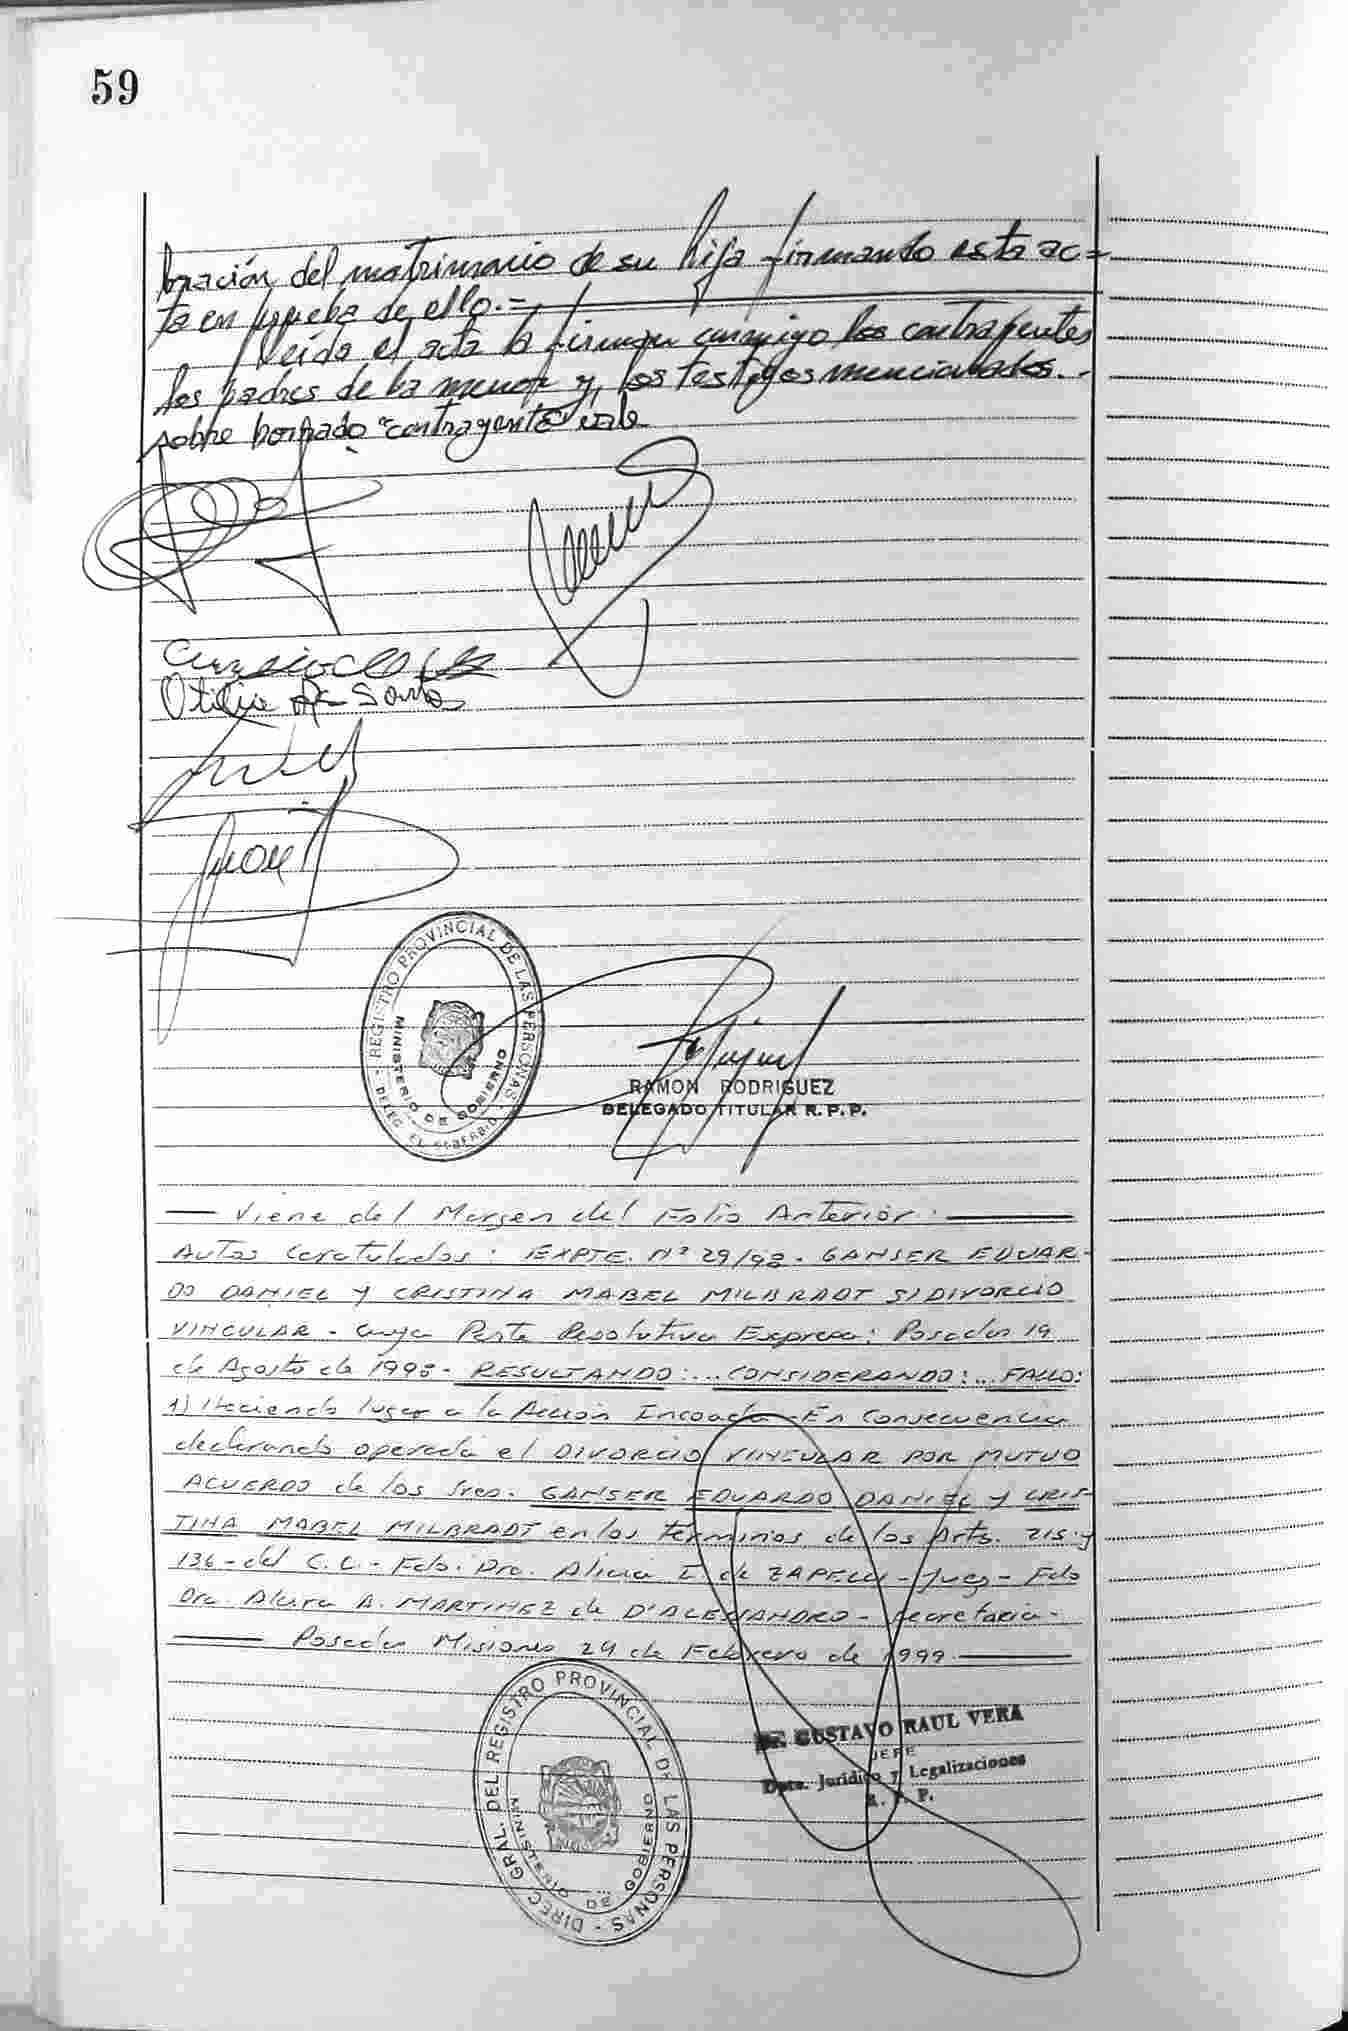 59
bración del matrimonio de su hija firmando esta ac-
ta en prueba de ello.-
Leída el acta la firman conmigo los contrayentes
los padres de la menor y los testigos mencionados.-
sobre borrado "contrayente" vale
Otilia Da Santos
REGISTRO PROVINCIAL DE LAS PERSONAS - DELEG. EL SOBERBIO
MINISTERIO DE GOBIERNO
RAMON RODRIGUEZ
DELEGADO TITULAR R.P.P.
Viene del Margen del Folio Anterior:
Autos Caratulados: EXPTE. Nº 29/98- GANSER EDUAR-
DO DANIEL Y CRISTINA MABEL MILBRADT S/DIVORCIO
VINCULAR - cuya Parte Resolutiva Expresa: Posadas 19
de Agosto de 1998- RESULTANDO:... CONSIDERANDO:... FALLO:
1) Haciendo lugar a la Acción Incoada- En Consecuencia
declarando operada el DIVORCIO VINCULAR POR MUTUO
ACUERDO de los Sres. GANSER EDUARDO DANIEL Y CRIS-
TINA MABEL MILBRADT en los términos de los Arts. 215 y
136- del C.C.- Fdo. Dra. Alicia I. de ZAPELLI - Juez - Fdo
Dra. A. MARTINEZ de D'ALESSANDRO - Secretaria-
Posadas Misiones 24 de Febrero de 1999
DIREC. GRAL. DEL REGISTRO PROVINCIAL DE LAS PERSONAS -
MINISTERIO DE GOBIERNO
GUSTAVO RAUL VERA
JEFE
Dpto. Jurídico y Legalizaciones
R. P. P.